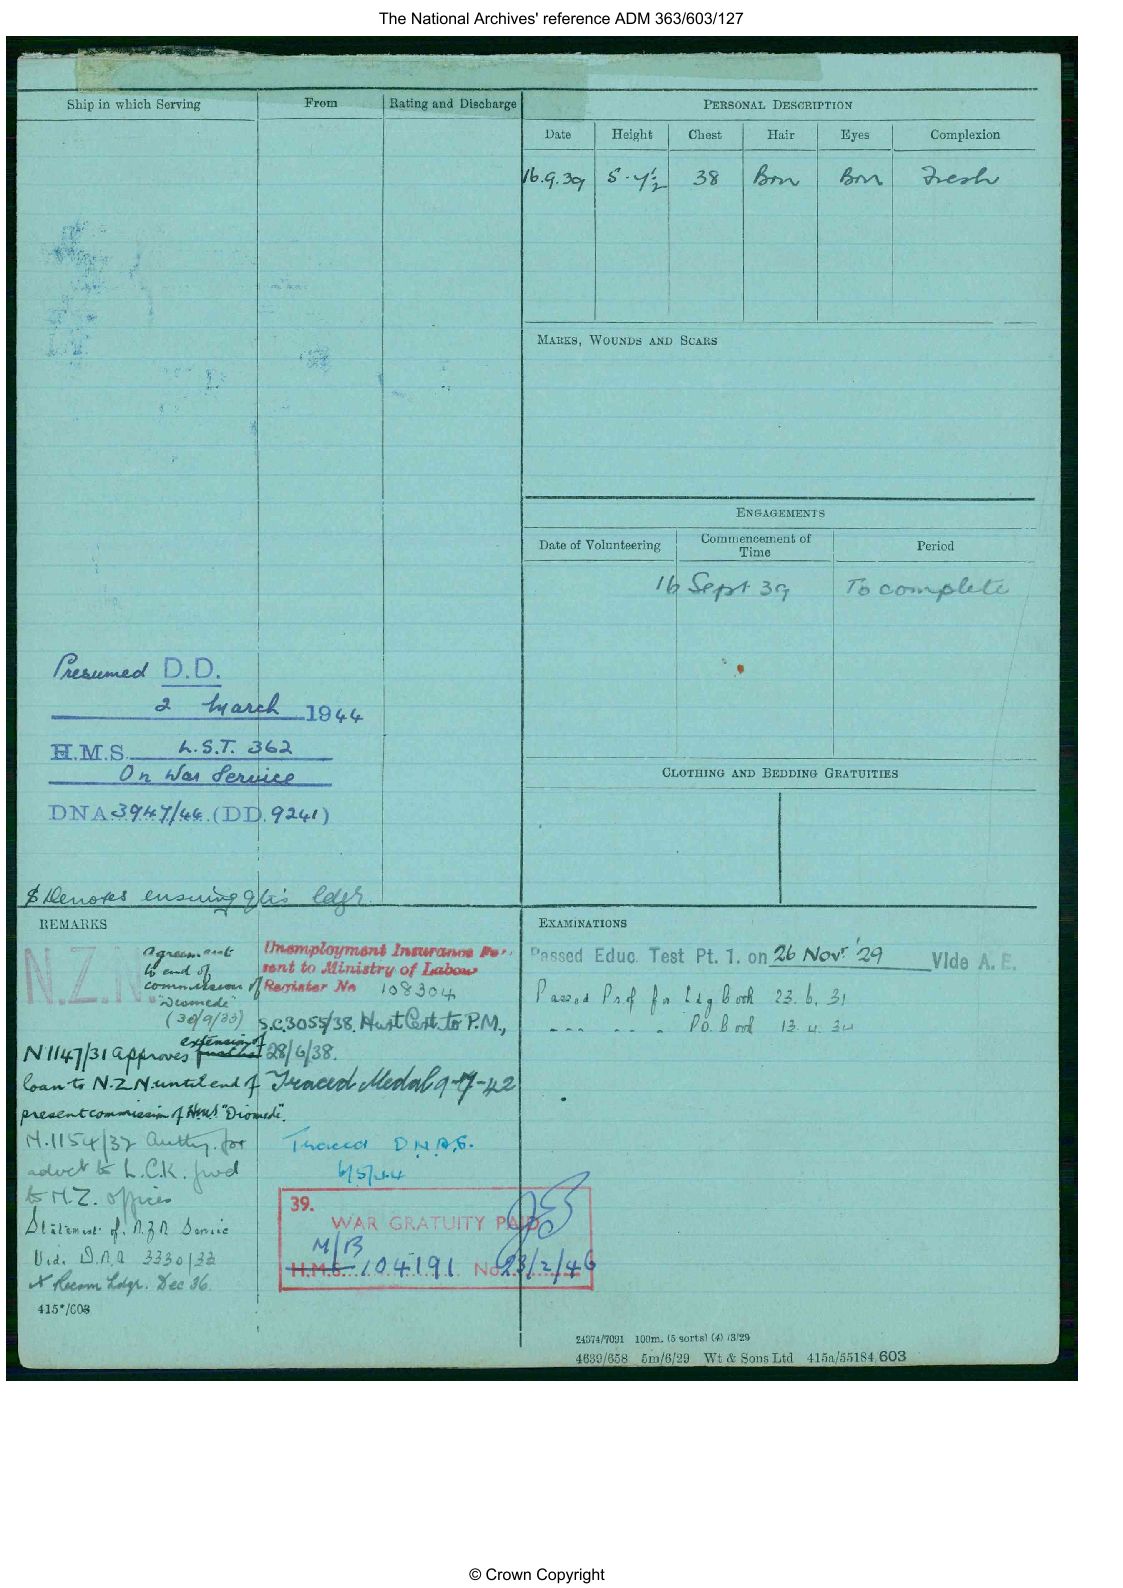 The National Archives' reference ADM 363/603/127
Ship in which Serving
From
Rating and Discharge
PERSONAL DESCRIPTION
Date
Height
Chest
Hair
Eyes
Complexion
16.9.39
5-4½
38
Brn
Brn
Fresh
MARKS, WOUNDS AND SCARS
ENGAGEMENTS
Date of Volunteering
Commencement of
Time
Period
16 Sept 39
To complete
Presumed D.D.
2 March 1944
H.M.S. L.S.T. 362
On War Service
DNA 3947/44 (DD.9241)
CLOTHING AND BEDDING GRATUITIES
$ Denotes ensuing Qtrs ldgr.
REMARKS
N.Z.N.
agreement
to end of
commission of
"Diomede"
(30/9/33)
N1147/31 approves extension of
loan to N.Z.N. until end of
present commission of HMS "Diomede".
N.1154/32 Authy. for
advct to L.C.K. fwd
to N.Z. offices
Statement of N.Z.N Service
Vide D.N.A 3330/33
Recom Ldgr. Dec 36.
415*/603
Unemployment Insurance
sent to Ministry of Labour
Register No 108304
S.C.3055/38. Hurt Cert. to P.M.,
28/6/38.
Traced Medal 9-7-42
Traced D.N.A.S.
6/5/44
39.
WAR GRATUITY PAID
M/B
H.M.S. 104191 No. 23/2/46
EXAMINATIONS
Passed Educ. Test Pt. 1. on 26 Novr '29 Vide A.F.
Passed Prof for Ldg Book 23.6.31
" " " " P.O. Book 13.4.34
24374/7091 100m. (5 sorts) (4) 3/29
4639/658 5m/6/29 Wt & Sons Ltd 415a/55184 603
© Crown Copyright